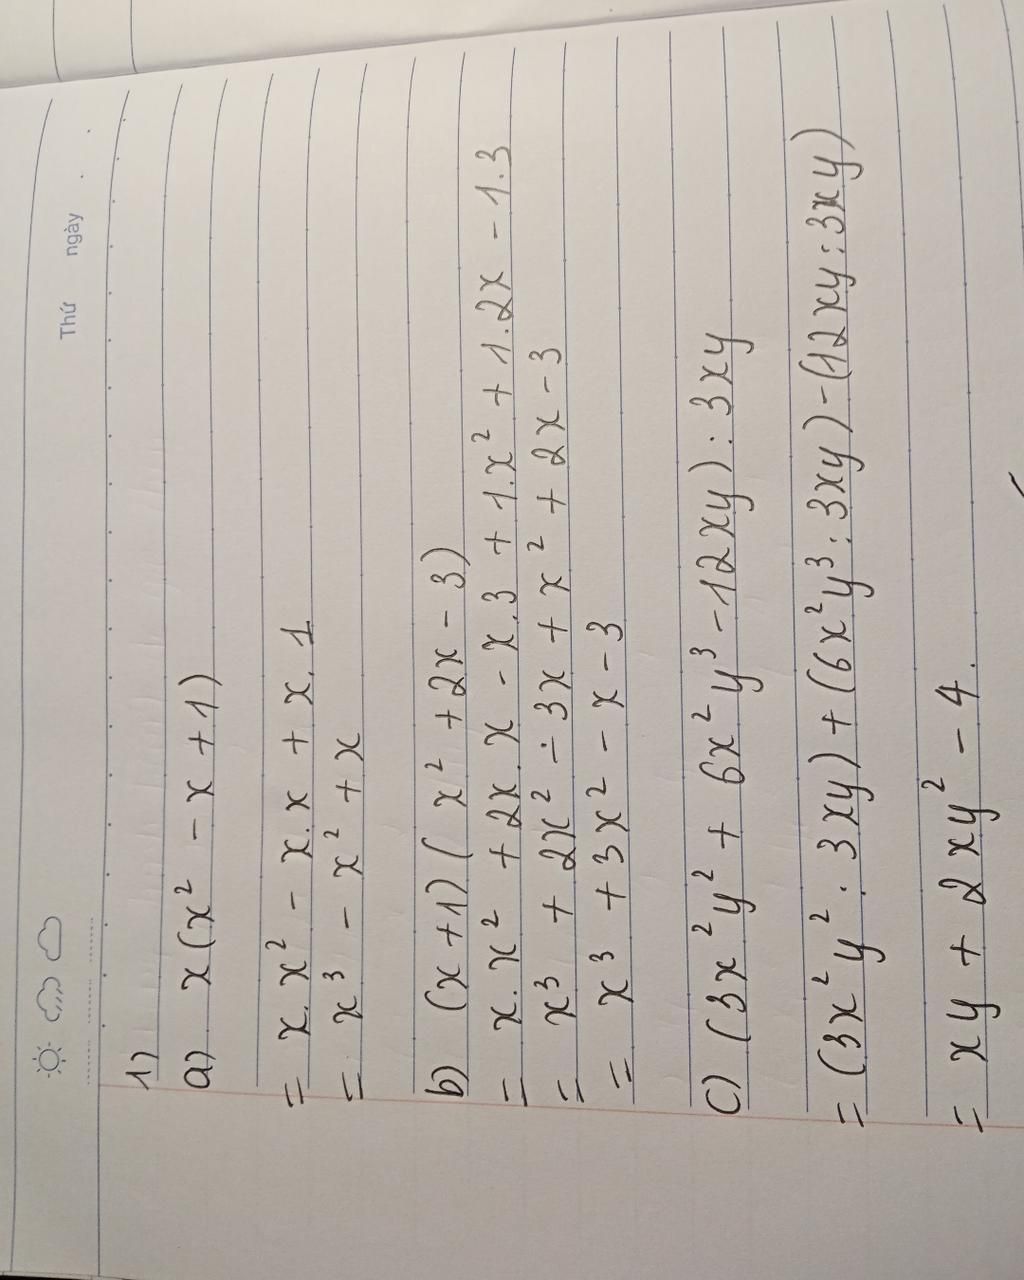 Thứ ngày
1)
a) x(x² - x + 1)
= x.x² - x.x + x.1
= x³ - x² + x
b) (x+1)(x² + 2x - 3)
= x.x² + 2x.x - x.3 + 1.x² + 1.2x - 1.3
= x³ + 2x² - 3x + x² + 2x - 3
= x³ + 3x² - x - 3
c) (3x²y² + 6x²y³ - 12xy) : 3xy
= (3x²y² : 3xy) + (6x²y³ : 3xy) - (12xy : 3xy)
= xy + 2xy² - 4.